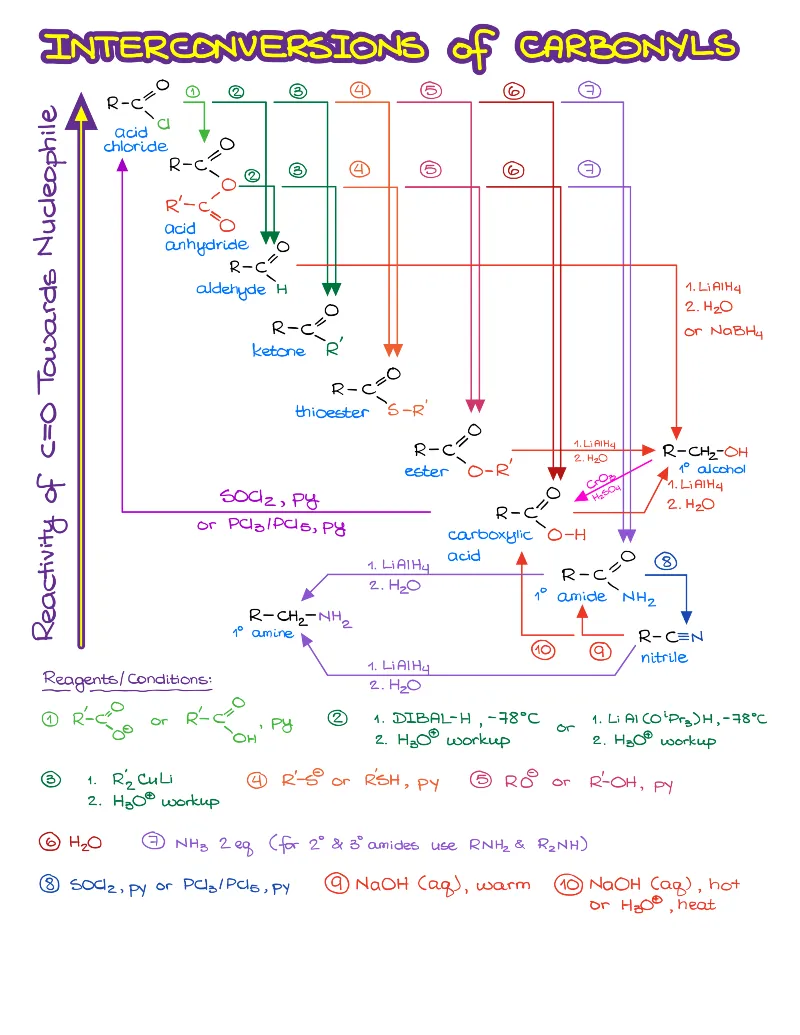 INTERCONVERSIONS of CARBONYLS
Reactivity of C=O Towards Nucleophile
R-C
O
Cl
acid
chloride
① ② ③ ④ ⑤ ⑥ ⑦
R-C
O
O
R'-C
O
acid
anhydride
② ③ ④ ⑤ ⑥ ⑦
R-C
O
H
aldehyde
1. LiAlH4
2. H2O
or NaBH4
R-C
O
R'
ketone
R-C
O
S-R'
thioester
R-C
O
O-R'
ester
1. LiAlH4
2. H2O
R-CH2-OH
1° alcohol
CrO3
H2SO4
1. LiAlH4
2. H2O
SOCl2, py
or PCl3/PCl5, py
R-C
O
O-H
carboxylic
acid
1. LiAlH4
2. H2O
R-C
O
NH2
1° amide
⑧
R-CH2-NH2
1° amine
R-C≡N
nitrile
⑩ ⑨
1. LiAlH4
2. H2O
Reagents/Conditions:
① R'-C
O
O⊖
or
R'-C
O
OH
, py
② 1. DIBAL-H, -78°C
2. H3O⊕ workup
or
1. LiAl(OiPr3)H, -78°C
2. H3O⊕ workup
③ 1. R'2CuLi
2. H3O⊕ workup
④ R'-S⊖ or R'SH, py
⑤ RO⊖ or R'-OH, py
⑥ H2O
⑦ NH3 2eq (for 2° & 3° amides use RNH2 & R2NH)
⑧ SOCl2, py or PCl3/PCl5, py
⑨ NaOH (aq), warm
⑩ NaOH (aq), hot
or H3O⊕, heat